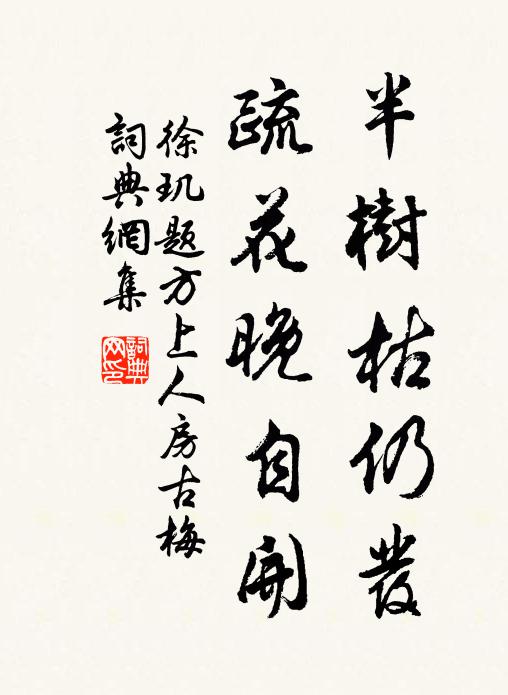 半樹枯仍發
疏花晚自開
徐玑题方上人房古梅
詞典網集
詞典網印